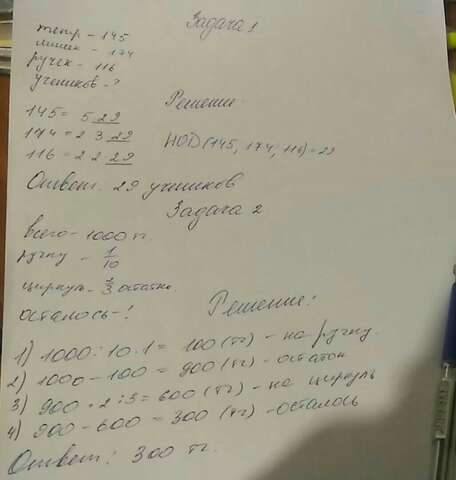 Задача 1
тетр - 145
линеек - 174
ручек - 116
учеников - ?
Решение
145 = 5 29
174 = 2 3 29
116 = 2 2 29
НОД (145, 174, 116) = 29
Ответ: 29 учеников
Задача 2
всего - 1000 тг
ручку - 1/10
циркуль - 2/3 остатка
осталось - ?
Решение:
1) 1000 : 10 · 1 = 100 (тг) - на ручку.
2) 1000 - 100 = 900 (тг) - остаток
3) 900 · 2 : 3 = 600 (тг) - на циркуль
4) 900 - 600 = 300 (тг) - осталось
Ответ: 300 тг.